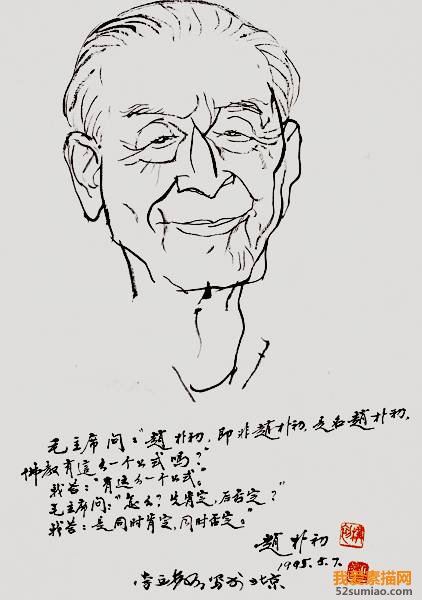 毛主席问:“趙朴初,即非趙朴初,是名趙朴初,
佛教有這么一个公式嗎?”
我答:“有這么一个公式。”
毛主席問:“怎么?先肯定,后否定?”
我答:是同时肯定,同时否定。”
趙朴初
1995.5.7.
写于北京
我爱素描网
52sumiao.com